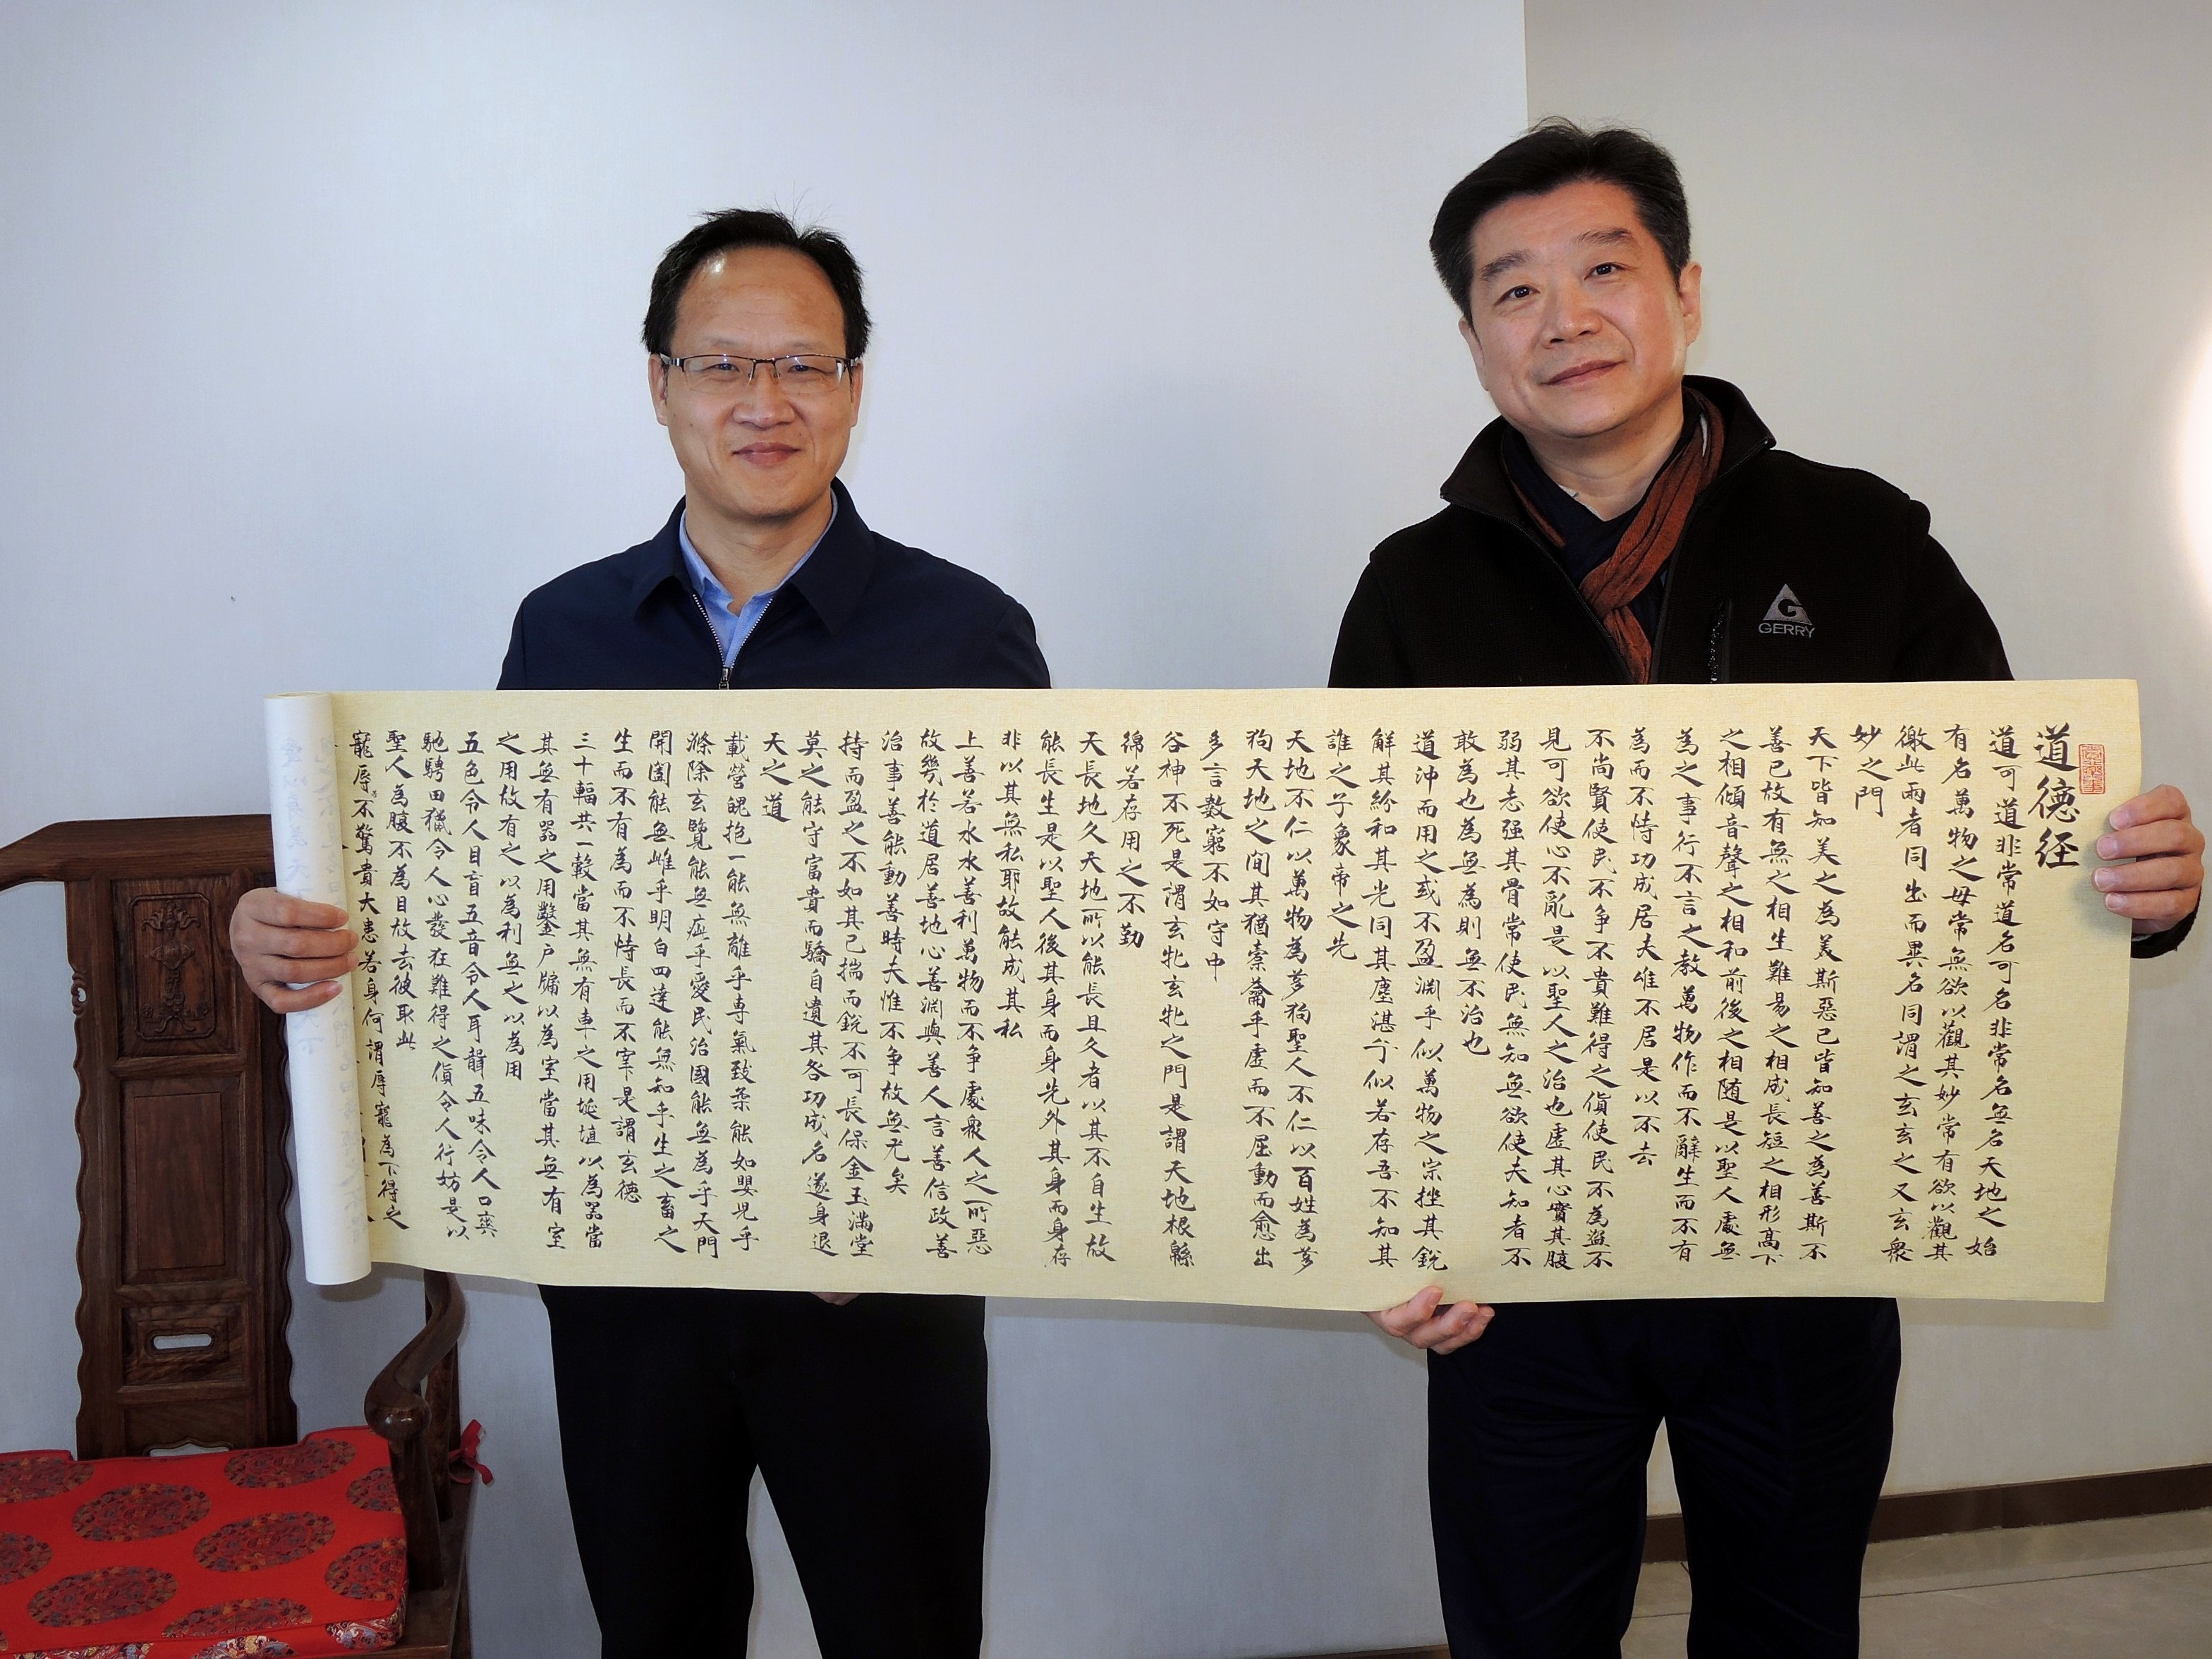 道德经
道可道非常道名可名非常名無名天地之始
有名萬物之母常無欲以觀其妙常有欲以觀其
徼此兩者同出而異名同謂之玄玄之又玄衆
妙之門
天下皆知美之為美斯惡已皆知善之為善斯不
善已故有無之相生難易之相成長短之相形高下
之相傾音聲之相和前後之相随是以聖人處無
為之事行不言之教萬物作而不辭生而不有
為而不恃功成居夫唯不居是以不去
不尚賢使民不争不貴難得之貨使民不為盜不
見可欲使心不亂是以聖人之治也虛其心實其腹
弱其志强其骨常使民無知無欲使夫知者不
敢為也為無為則無不治也
道沖而用之或不盈淵乎似萬物之宗挫其銳
解其紛和其光同其塵湛兮似若存吾不知其
誰之子象帝之先
天地不仁以萬物為芻狗聖人不仁以百姓為芻
狗天地之间其猶橐籥乎虛而不屈動而愈出
多言數窮不如守中
谷神不死是謂玄牝玄牝之門是謂天地根綿
綿若存用之不勤
天長地久天地所以能長且久者以其不自生故
能長生是以聖人後其身而身先外其身而身存
非以其無私耶故能成其私
上善若水水善利萬物而不争處衆人之所惡
故幾於道居善地心善淵與善人言善信政善
治事善能動善時夫惟不争故無尤矣
持而盈之不如其已揣而銳不可長保金玉滿堂
莫之能守富貴而驕自遺其咎功成名遂身退
天之道
載營魄抱一能無離乎專氣致柔能如嬰兒乎
滌除玄覽能無疵乎愛民治國能無為乎天門
開闔能無雌乎明白四達能無知乎生之畜之
生而不有為而不恃長而不宰是謂玄德
三十輻共一轂當其無有車之用埏埴以為器當
其無有器之用鑿户牖以為室當其無有室
之用故有之以為利無之以為用
五色令人目盲五音令人耳聾五味令人口爽
馳騁田獵令人心發狂難得之貨令人行妨是以
聖人為腹不為目故去彼取此
寵辱若不驚貴大患若身何謂辱寵為下得之
GERRY